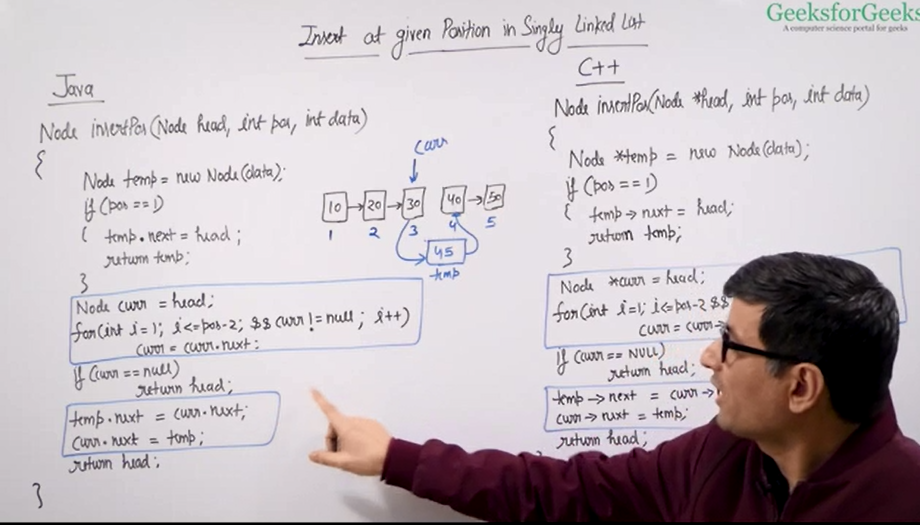 GeeksforGeeks
A computer science portal for geeks
Insert at given Position in Singly Linked List
Java
Node insertPos(Node head, int pos, int data)
{
Node temp = new Node(data);
if (pos == 1)
{ temp.next = head;
return temp;
}
Node curr = head;
for(int i=1; i<=pos-2; && curr!=null; i++)
curr = curr.next;
if (curr == null)
return head;
temp.next = curr.next;
curr.next = temp;
return head;
}
curr
10 20 30 40 50
1 2 3 4 5
45
tmp
C++
Node insertPos(Node *head, int pos, int data)
{
Node *temp = new Node(data);
if (pos == 1)
{ temp->next = head;
return temp;
}
Node *curr = head;
for(int i=1; i<=pos-2 &&
curr = curr->
if (curr == NULL)
return head;
temp->next = curr->
curr->next = temp;
return head;